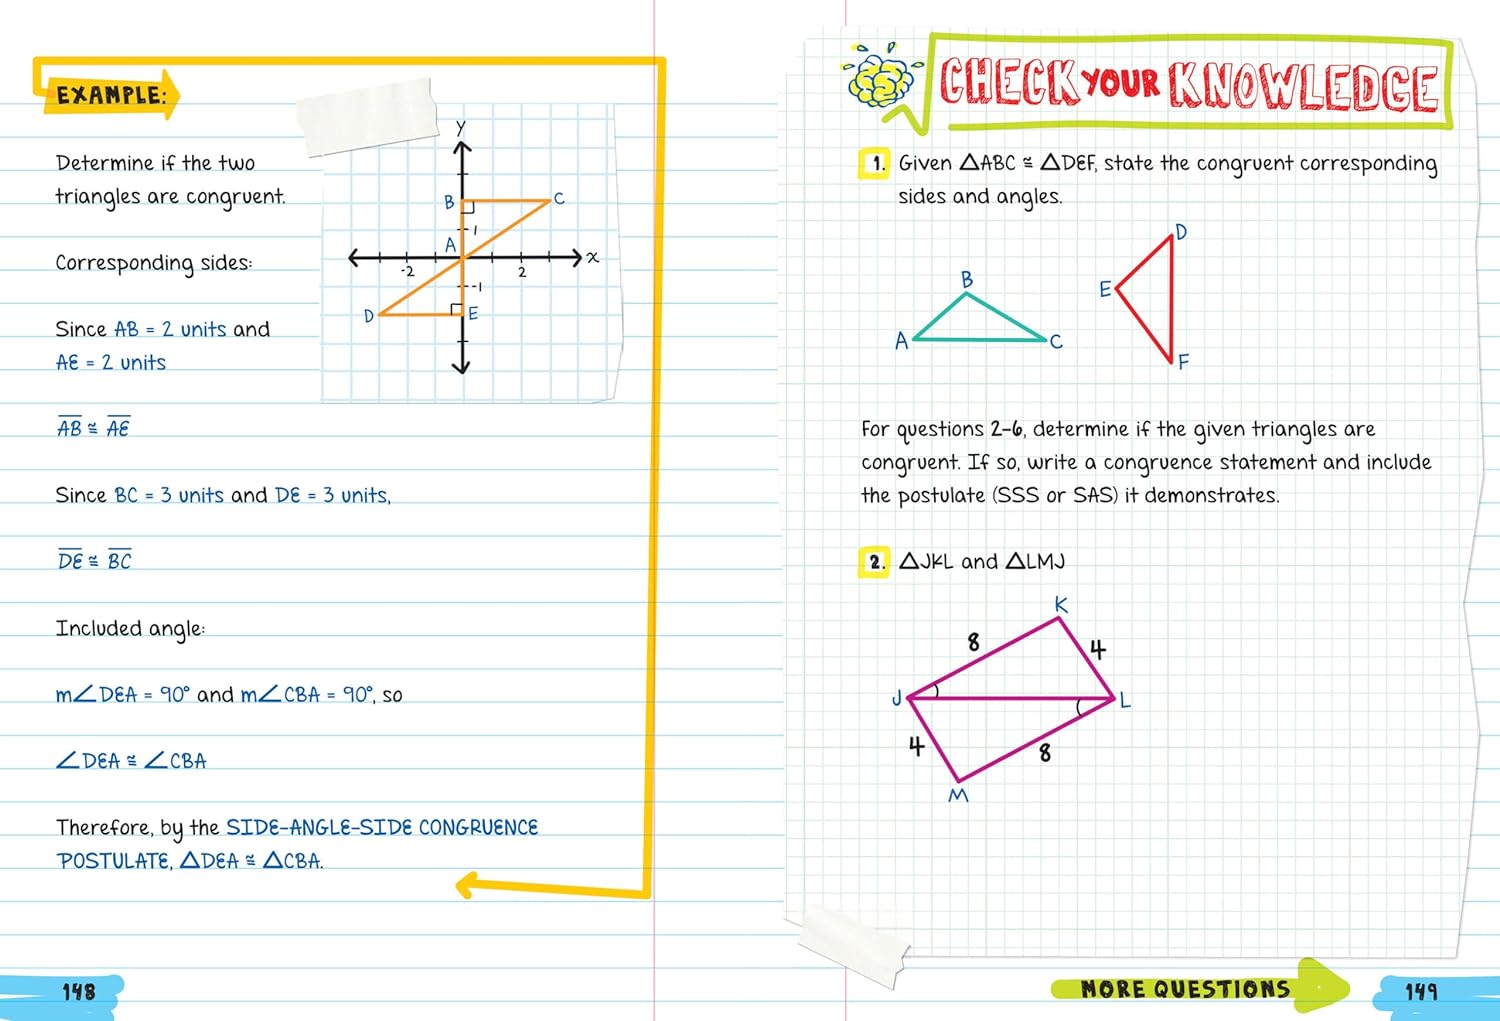 EXAMPLE:
Determine if the two
triangles are congruent.
Corresponding sides:
Since AB = 2 units and
AE = 2 units
A̅B̅ ≅ A̅E̅
Since BC = 3 units and DE = 3 units,
D̅E̅ ≅ B̅C̅
Included angle:
m∠DEA = 90° and m∠CBA = 90°, so
∠DEA ≅ ∠CBA
Therefore, by the SIDE-ANGLE-SIDE CONGRUENCE
POSTULATE, △DEA ≅ △CBA.
y
B
C
1
A
x
-2
2
-1
D
E
148
CHECK YOUR KNOWLEDGE
1. Given △ABC ≅ △DEF, state the congruent corresponding
sides and angles.
D
B
E
A
C
F
For questions 2–6, determine if the given triangles are
congruent. If so, write a congruence statement and include
the postulate (SSS or SAS) it demonstrates.
2. △JKL and △LMJ
K
8
4
J
L
4
8
M
MORE QUESTIONS
149